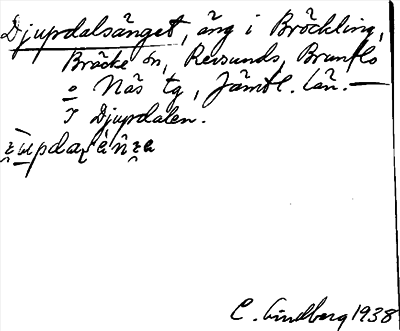 Djupdalsänget, äng i Bräckling,
Bräcke sn, Revsunds, Brunflo
o Näs tg, Jämtl. län. —
I Djupdalen.
C. Lindberg 1938